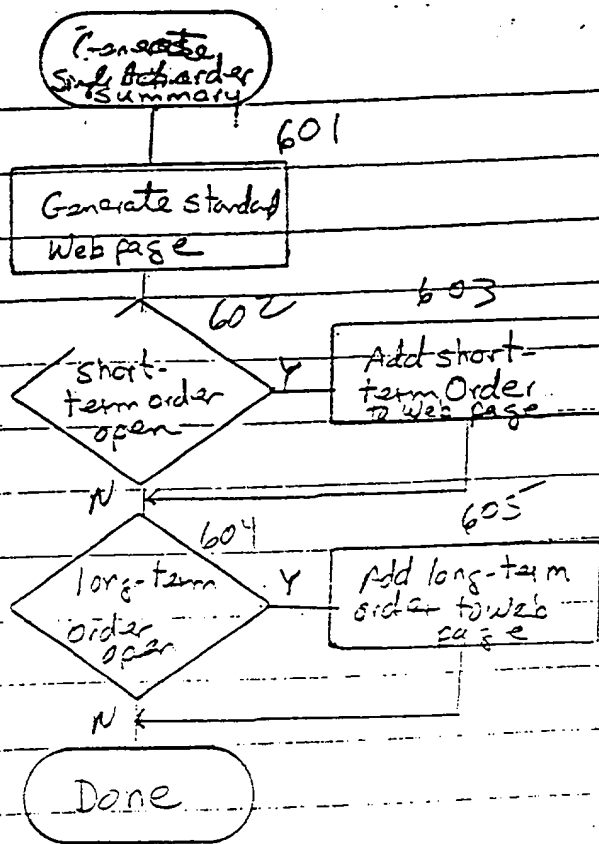 Generate
Single Action order
summary
601
Generate standard
Web page
602
603
short-
term order
open
Y
Add short-
term Order
to Web page
N
604
605
long-term
order
open
Y
Add long-term
order to Web
page
N
Done